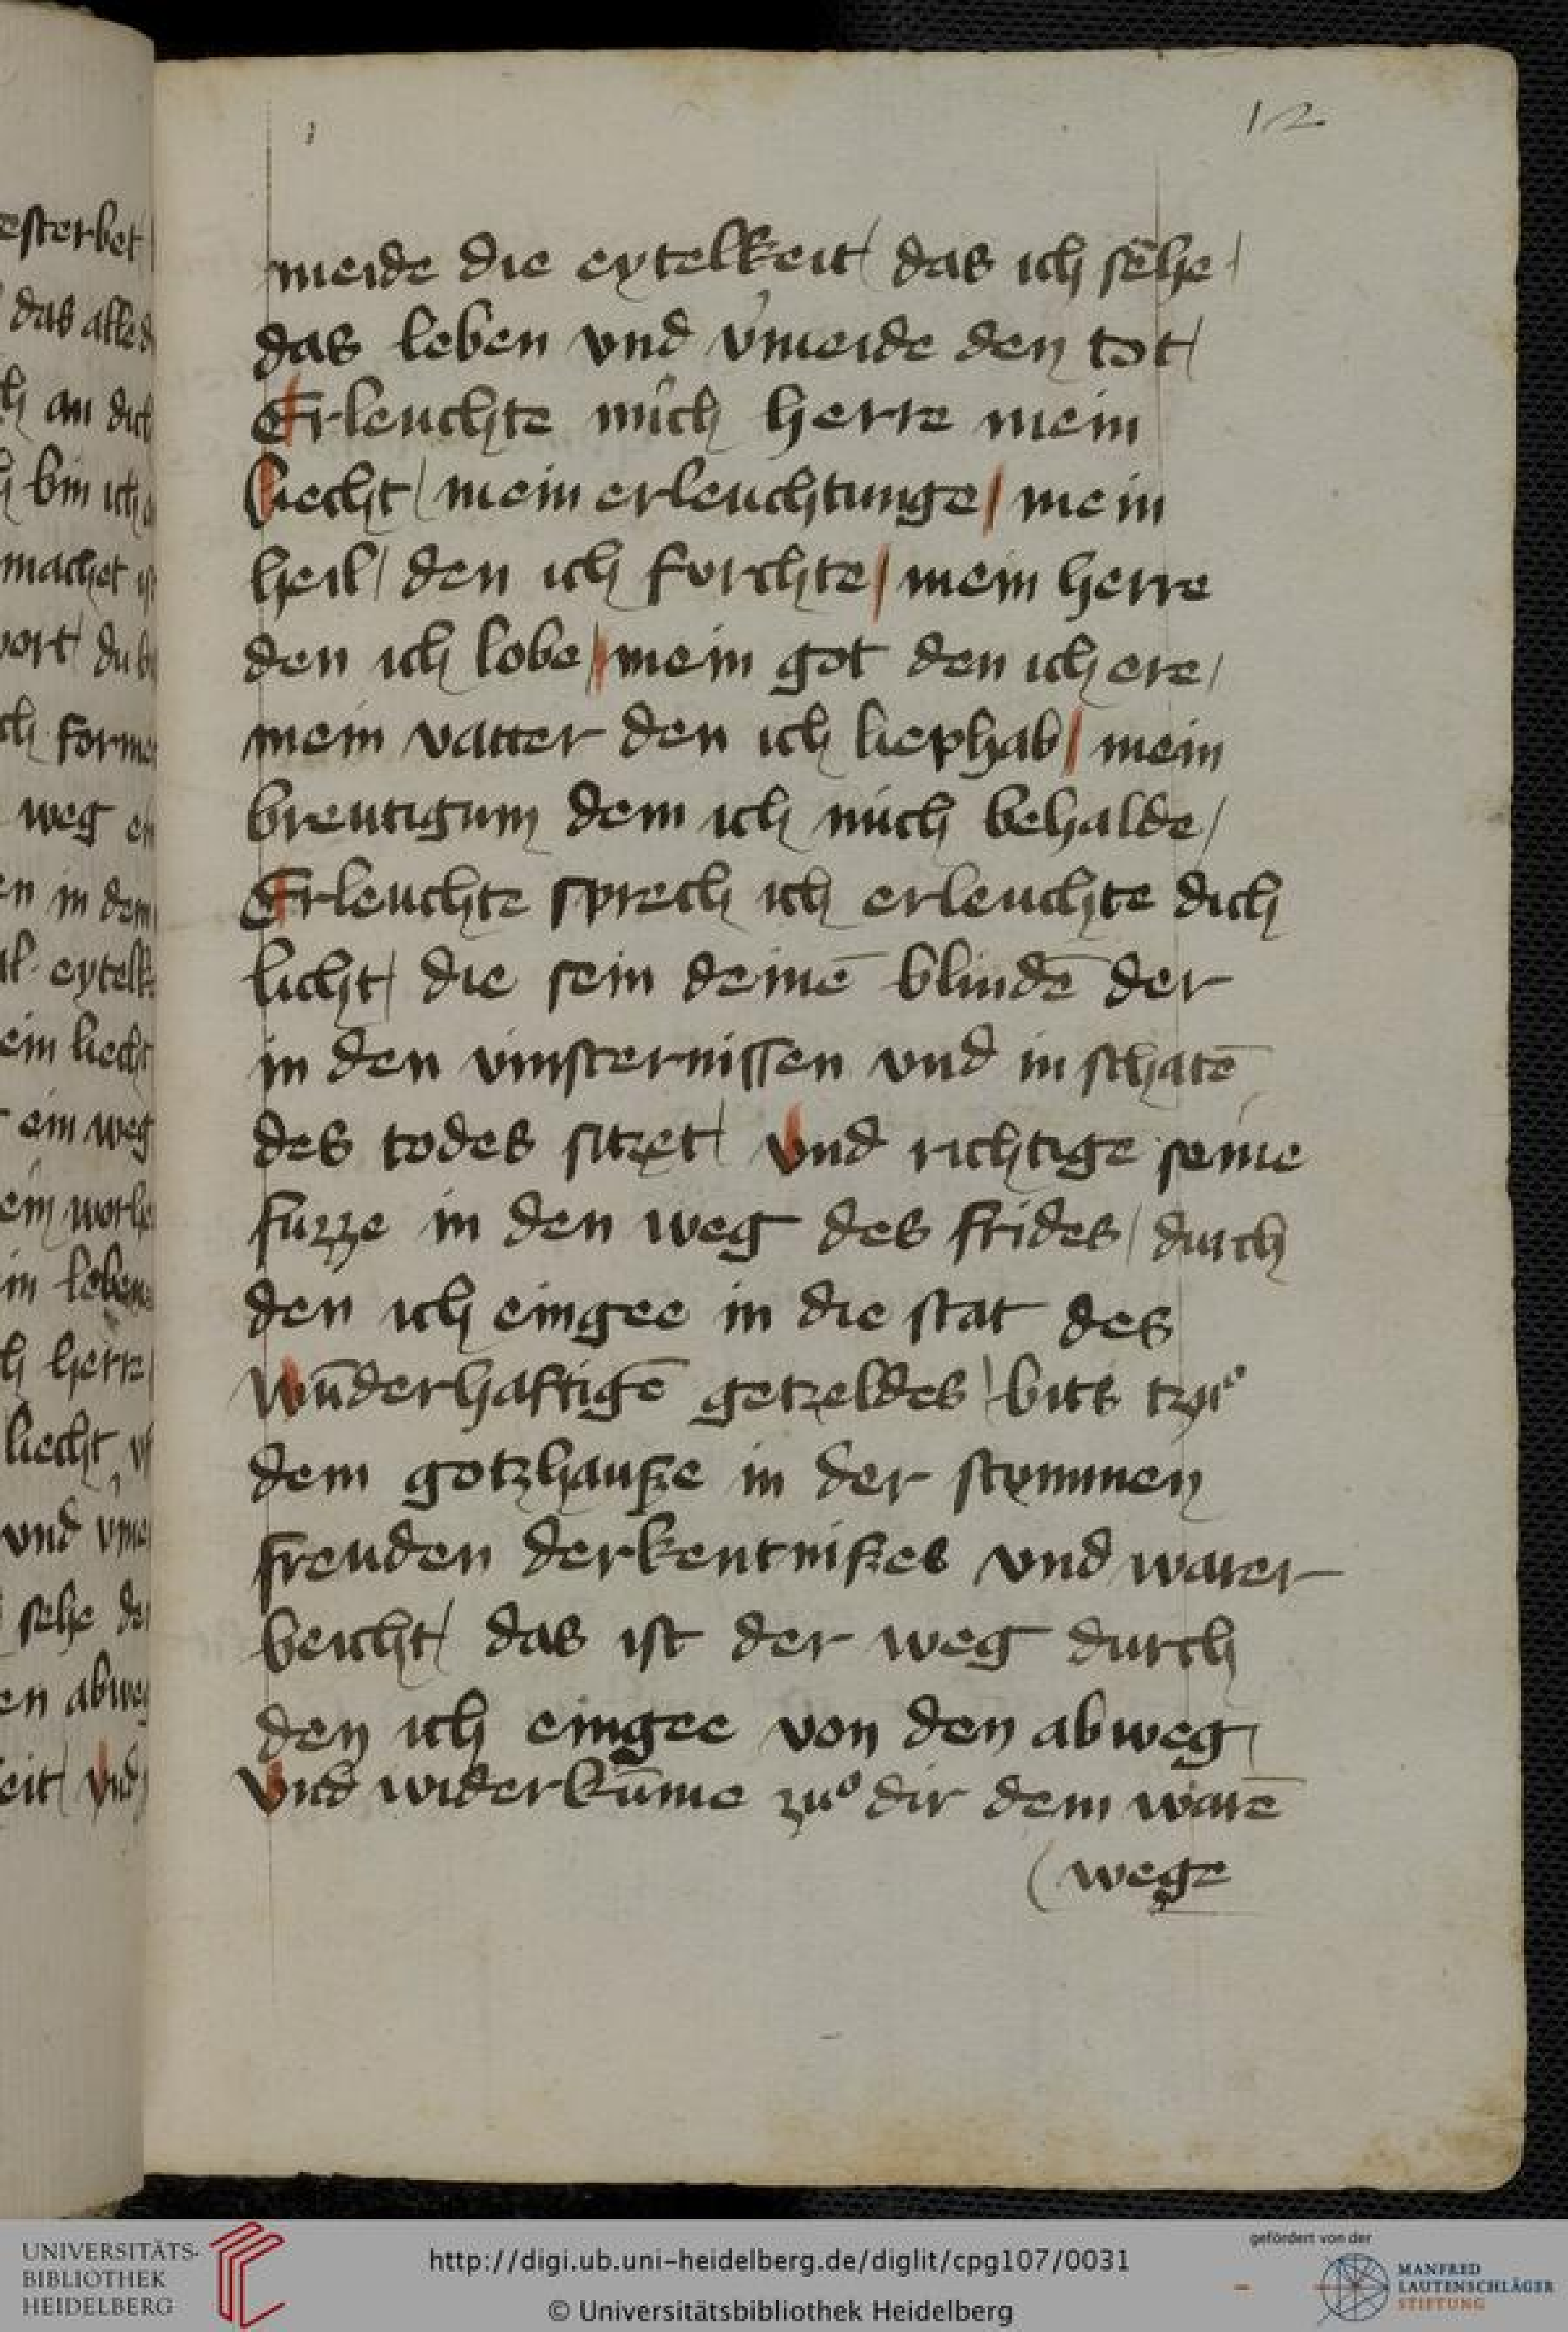 12
meide die eytelkeit / das ich sehe /
das leben vnd v̾meide den tot /
Erleuchte mich herre mein
liecht / mein erleuchtunge / mein
heil / den ich forchte / mein herre
den ich lobe / mein got den ich ere /
mein vatter den ich liephab / mein
breutigum dem ich mich behalde /
Erleuchte sprech ich erleuchte dich
licht / die sein deinē blindē der
in den vinsternissen vnd in schatē
des todes sitzet / vnd richtige seine
fuzze in den weg des frides / durch
den ich eingee in die stat des
wūderhaftigē getzeldes / bitts tzuͦ
dem gotzhausze in der stymmen
freuden derkentniszes vnd warer
beicht / das ist der weg durch
den ich eingee von den abweg /
vnd widerkūme zuͦ dir dem warē
( wege
esterbet /
das alle d
h an dich
h bin ich
machet
wort / du b
ch forme
weg
en in dem
eytelk
ein liecht
ein weg
in leben
h herre /
liecht
vnd v̾me
sehe de
en abweg
eit / vnd
UNIVERSITÄTS-
BIBLIOTHEK
HEIDELBERG
http://digi.ub.uni-heidelberg.de/diglit/cpg107/0031
© Universitätsbibliothek Heidelberg
gefördert von der
MANFRED
LAUTENSCHLÄGER
STIFTUNG